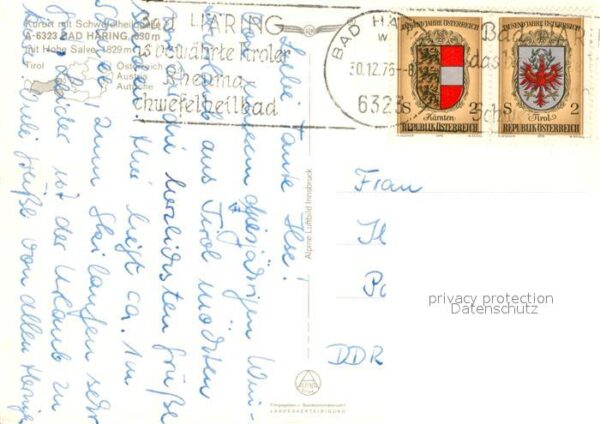 Kurort mit Schwefelheilbad
A-6323 BAD HÄRING, 630 m
mit Hohe Salve, 1829 m
Tirol Österreich
Austria
Autriche
BAD HÄRING
bewährte Tiroler
Rheuma
Schwefelheilbad
BAD HÄ
30.12.76
6323
Bad
das
Sch
TAUSEND JAHRE ÖSTERREICH
S 2
Kärnten
REPUBLIK ÖSTERREICH
TAUSEND JAHRE ÖSTERREICH
S 2
Tirol
REPUBLIK ÖSTERREICH
Liebe Tante Ilse!
Von unserem diesjährigen Win-
aus Tirol möchten
herzlichsten Grüße
Hier liegt ca. 1 m
zum Skilaufen sehr
leider ist der Urlaub zu
Viele Grüße von allen
Alpine Luftbild Innsbruck
Freigegeben v. Bundesministerium f.
LANDESVERTEIDIGUNG
Frau
Il
Po
DDR
privacy protection
Datenschutz